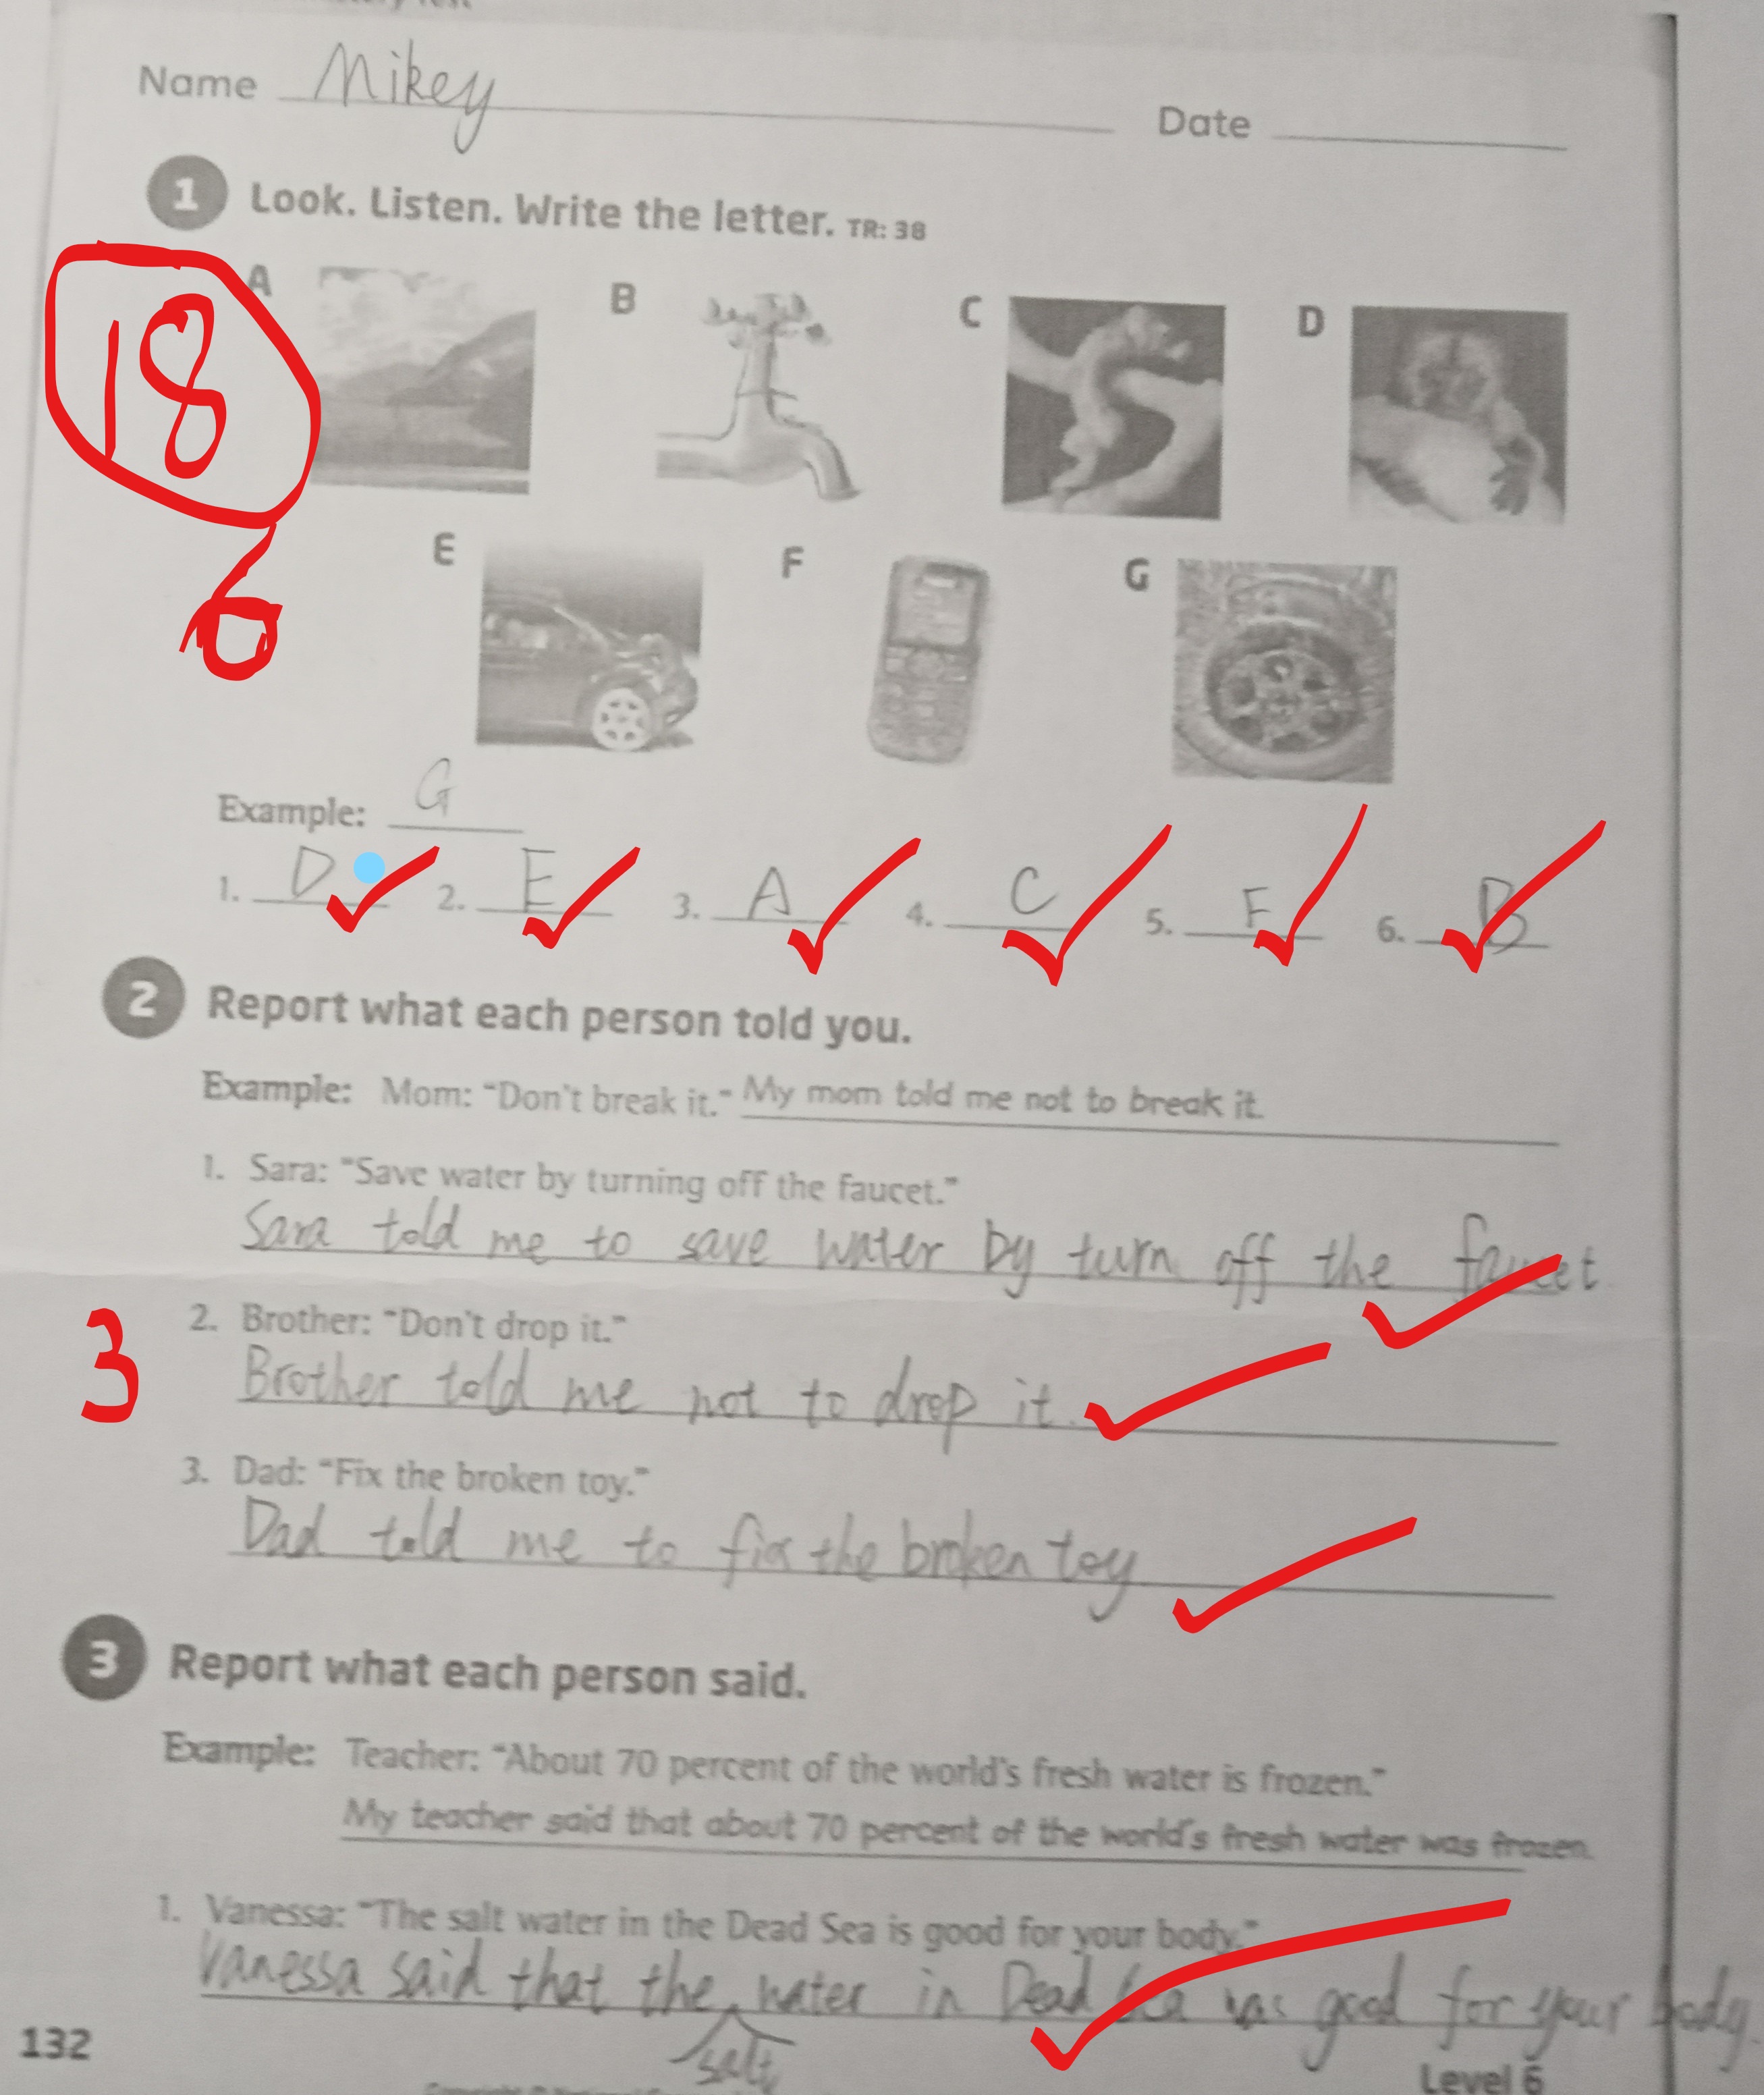 Name Mikey Date
1 Look. Listen. Write the letter. TR: 38
18
A B C D
6
E F G
Example: G
1. D 2. E 3. A 4. C 5. F 6. B
2 Report what each person told you.
Example: Mom: "Don't break it." My mom told me not to break it.
1. Sara: "Save water by turning off the faucet."
Sara told me to save water by turn off the faucet
2. Brother: "Don't drop it."
3
Brother told me not to drop it.
3. Dad: "Fix the broken toy."
Dad told me to fix the broken toy
3 Report what each person said.
Example: Teacher: "About 70 percent of the world's fresh water is frozen."
My teacher said that about 70 percent of the world's fresh water was frozen.
1. Vanessa: "The salt water in the Dead Sea is good for your body."
Vanessa said that the water in Dead Sea was good for your body.
salt
132
Level 6